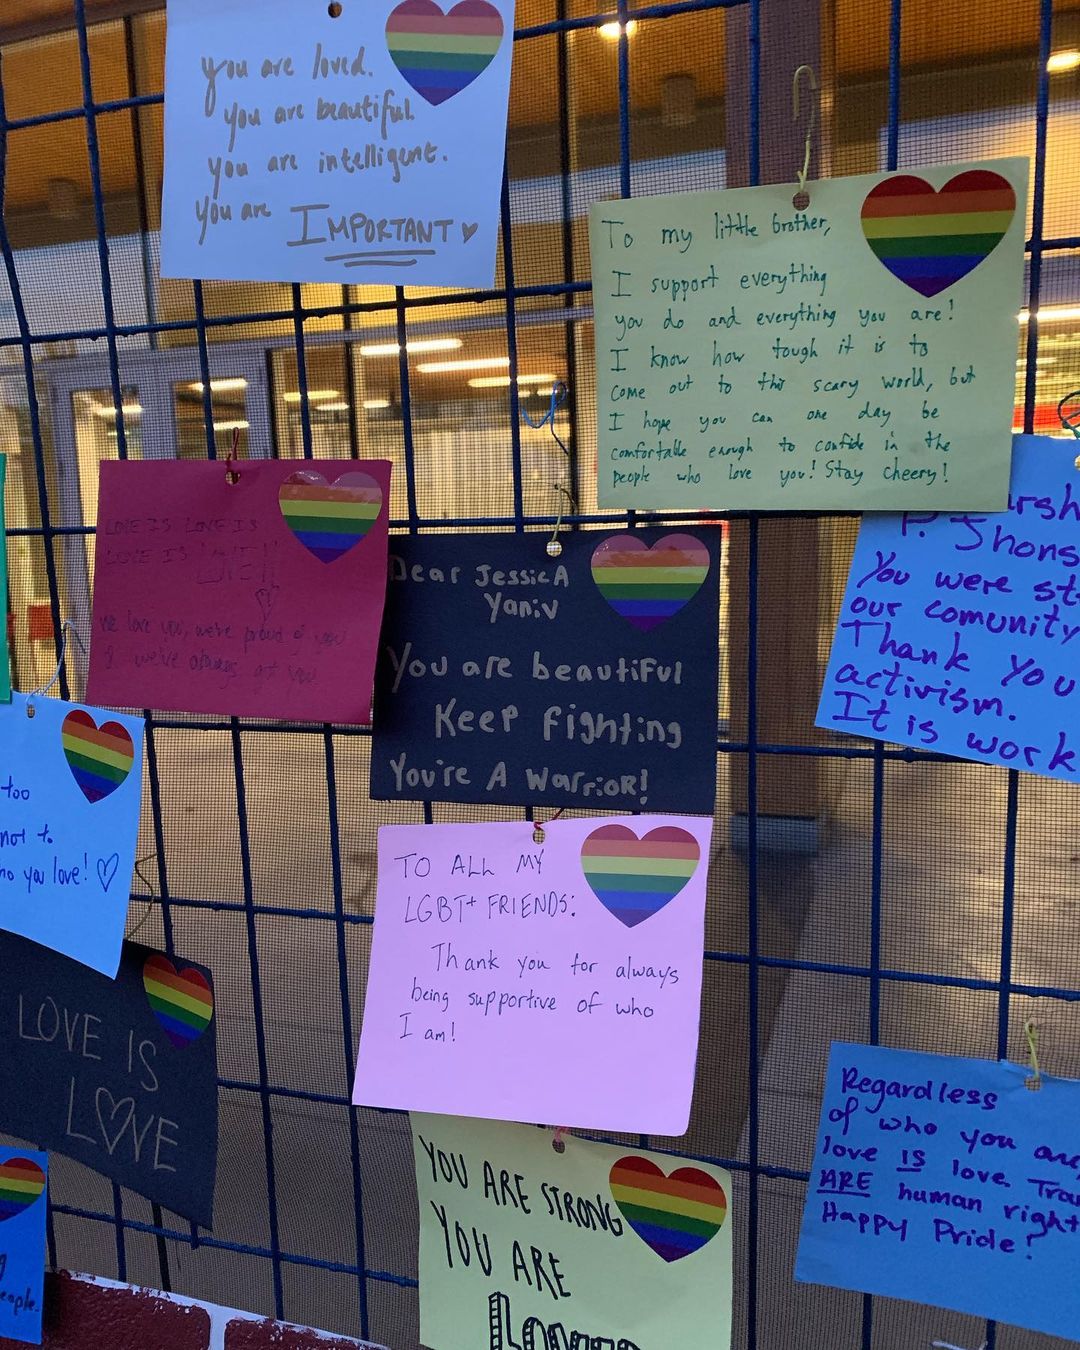 You are loved.
You are beautiful.
You are intelligent.
You are IMPORTANT ♥
To my little brother,
I support everything
you do and everything you are!
I know how tough it is to
come out to this scary world, but
I hope you can one day be
comfortable enough to confide in the
people who love you! Stay cheery!
LOVE IS LOVE IS
LOVE IS
We love you, we're proud of you
& we've always got you
Dear Jessica
Yaniv
You are beautiful
Keep fighting
You're A Warrior!
P. Jhons
You were
our comunity
Thank you
activism.
It is work
too
not to
you love! ♡
TO ALL MY
LGBT+ FRIENDS:
Thank you for always
being supportive of who
I am!
LOVE IS
LOVE
Regardless
of who you
love IS love.
ARE human right
Happy Pride!
YOU ARE STRONG
YOU ARE
LOVED